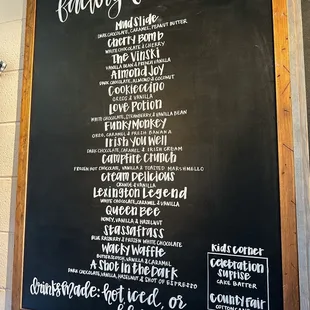 factory
Mudslide
DARK CHOCOLATE, CARAMEL, PEANUT BUTTER
Cherry Bomb
WHITE CHOCOLATE & CHERRY
The Vinski
VANILLA BEAN & FRENCH VANILLA
Almond Joy
DARK CHOCOLATE, ALMOND & COCONUT
Cookieccino
OREOS & VANILLA
Love Potion
WHITE CHOCOLATE, STRAWBERRY, & VANILLA BEAN
Funky Monkey
OREO, CARAMEL & FRESH BANANA
Irish You Well
DARK CHOCOLATE, CARAMEL & IRISH CREAM
Campfire Crunch
FROZEN HOT CHOCOLATE, VANILLA & TOASTED MARSHMELLO
Cream Delicious
ORANGE & VANILLA
Lexington Legend
WHITE CHOCOLATE, CARAMEL & VANILLA
Queen Bee
HONEY, VANILLA & HAZELNUT
Stassafrass
BLUE RASPBERRY & FROZEN WHITE CHOCOLATE
Wacky Waffle
BUTTERSCOTCH, VANILLA & CARAMEL
A Shot in the Dark
DARK CHOCOLATE, VANILLA, HAZELNUT & SHOT OF ESPRESSO
drinks made: hot, iced, or
Kids Corner
Celebration
Suprise
CAKE BATTER
County Fair